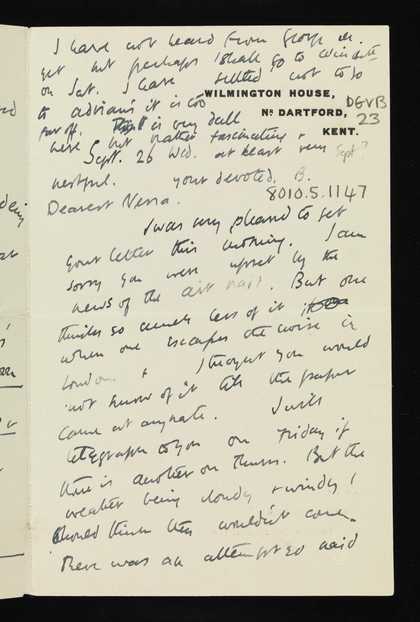 I have not heard from George as
yet but perhaps I shall go to
on Sat. I have settled not to go
to Adrian's it is too
far off. It is very dull
here but rather fascinating &
WILMINGTON HOUSE,
Nr DARTFORD,
KENT.
DGVB
23
Sept. 26 Wed. at least very
Sept?
restful. your devoted, B.
8010.5.1147
Dearest Nessa.
I was very pleased to get
your letter this morning. I am
sorry you were upset by the
news of the air raid. But one
thinks so much less of it
when one escapes the noise in
London & I thought you would
not know of it till the paper
came at any rate. I will
telegraph to you on Friday if
there is another on Thurs. But the
weather being cloudy & windy I
should think they wouldn't come.
There was an attempted raid